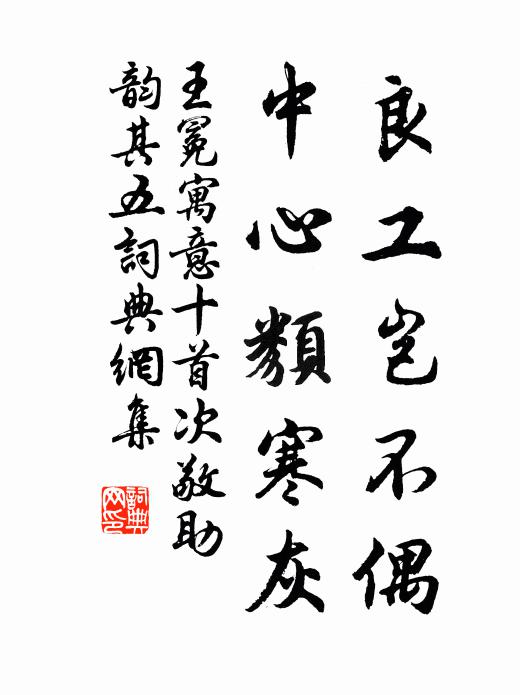 良工岂不偶
中心類寒灰
王冕寓意十首次敬助
韵其五詞典網集
詞典
网印